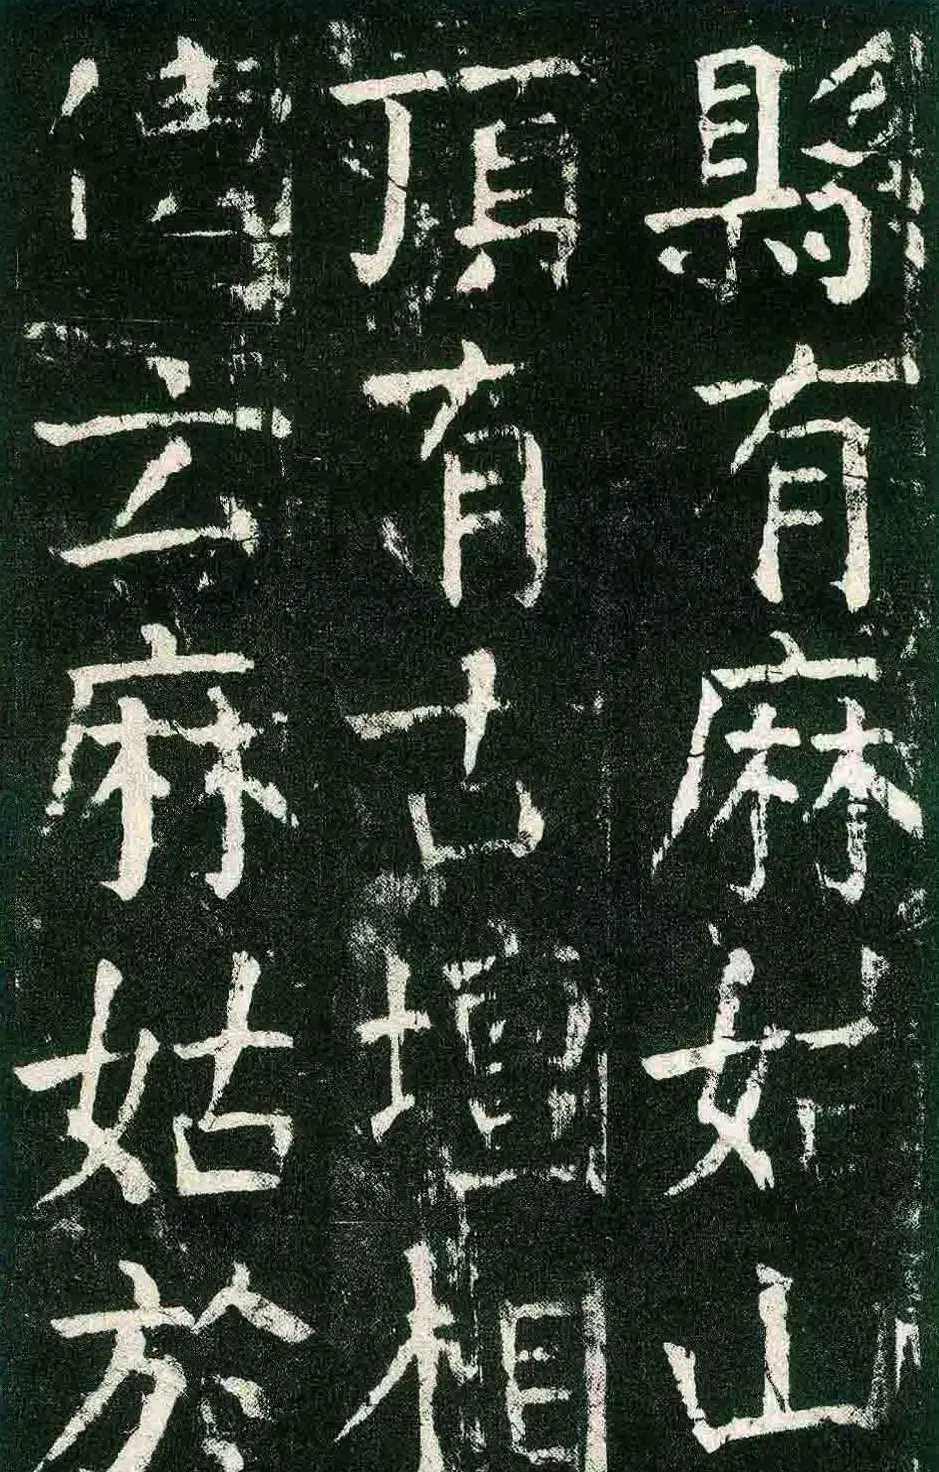 縣有麻姑山
頂有古壇相
傳云麻姑於